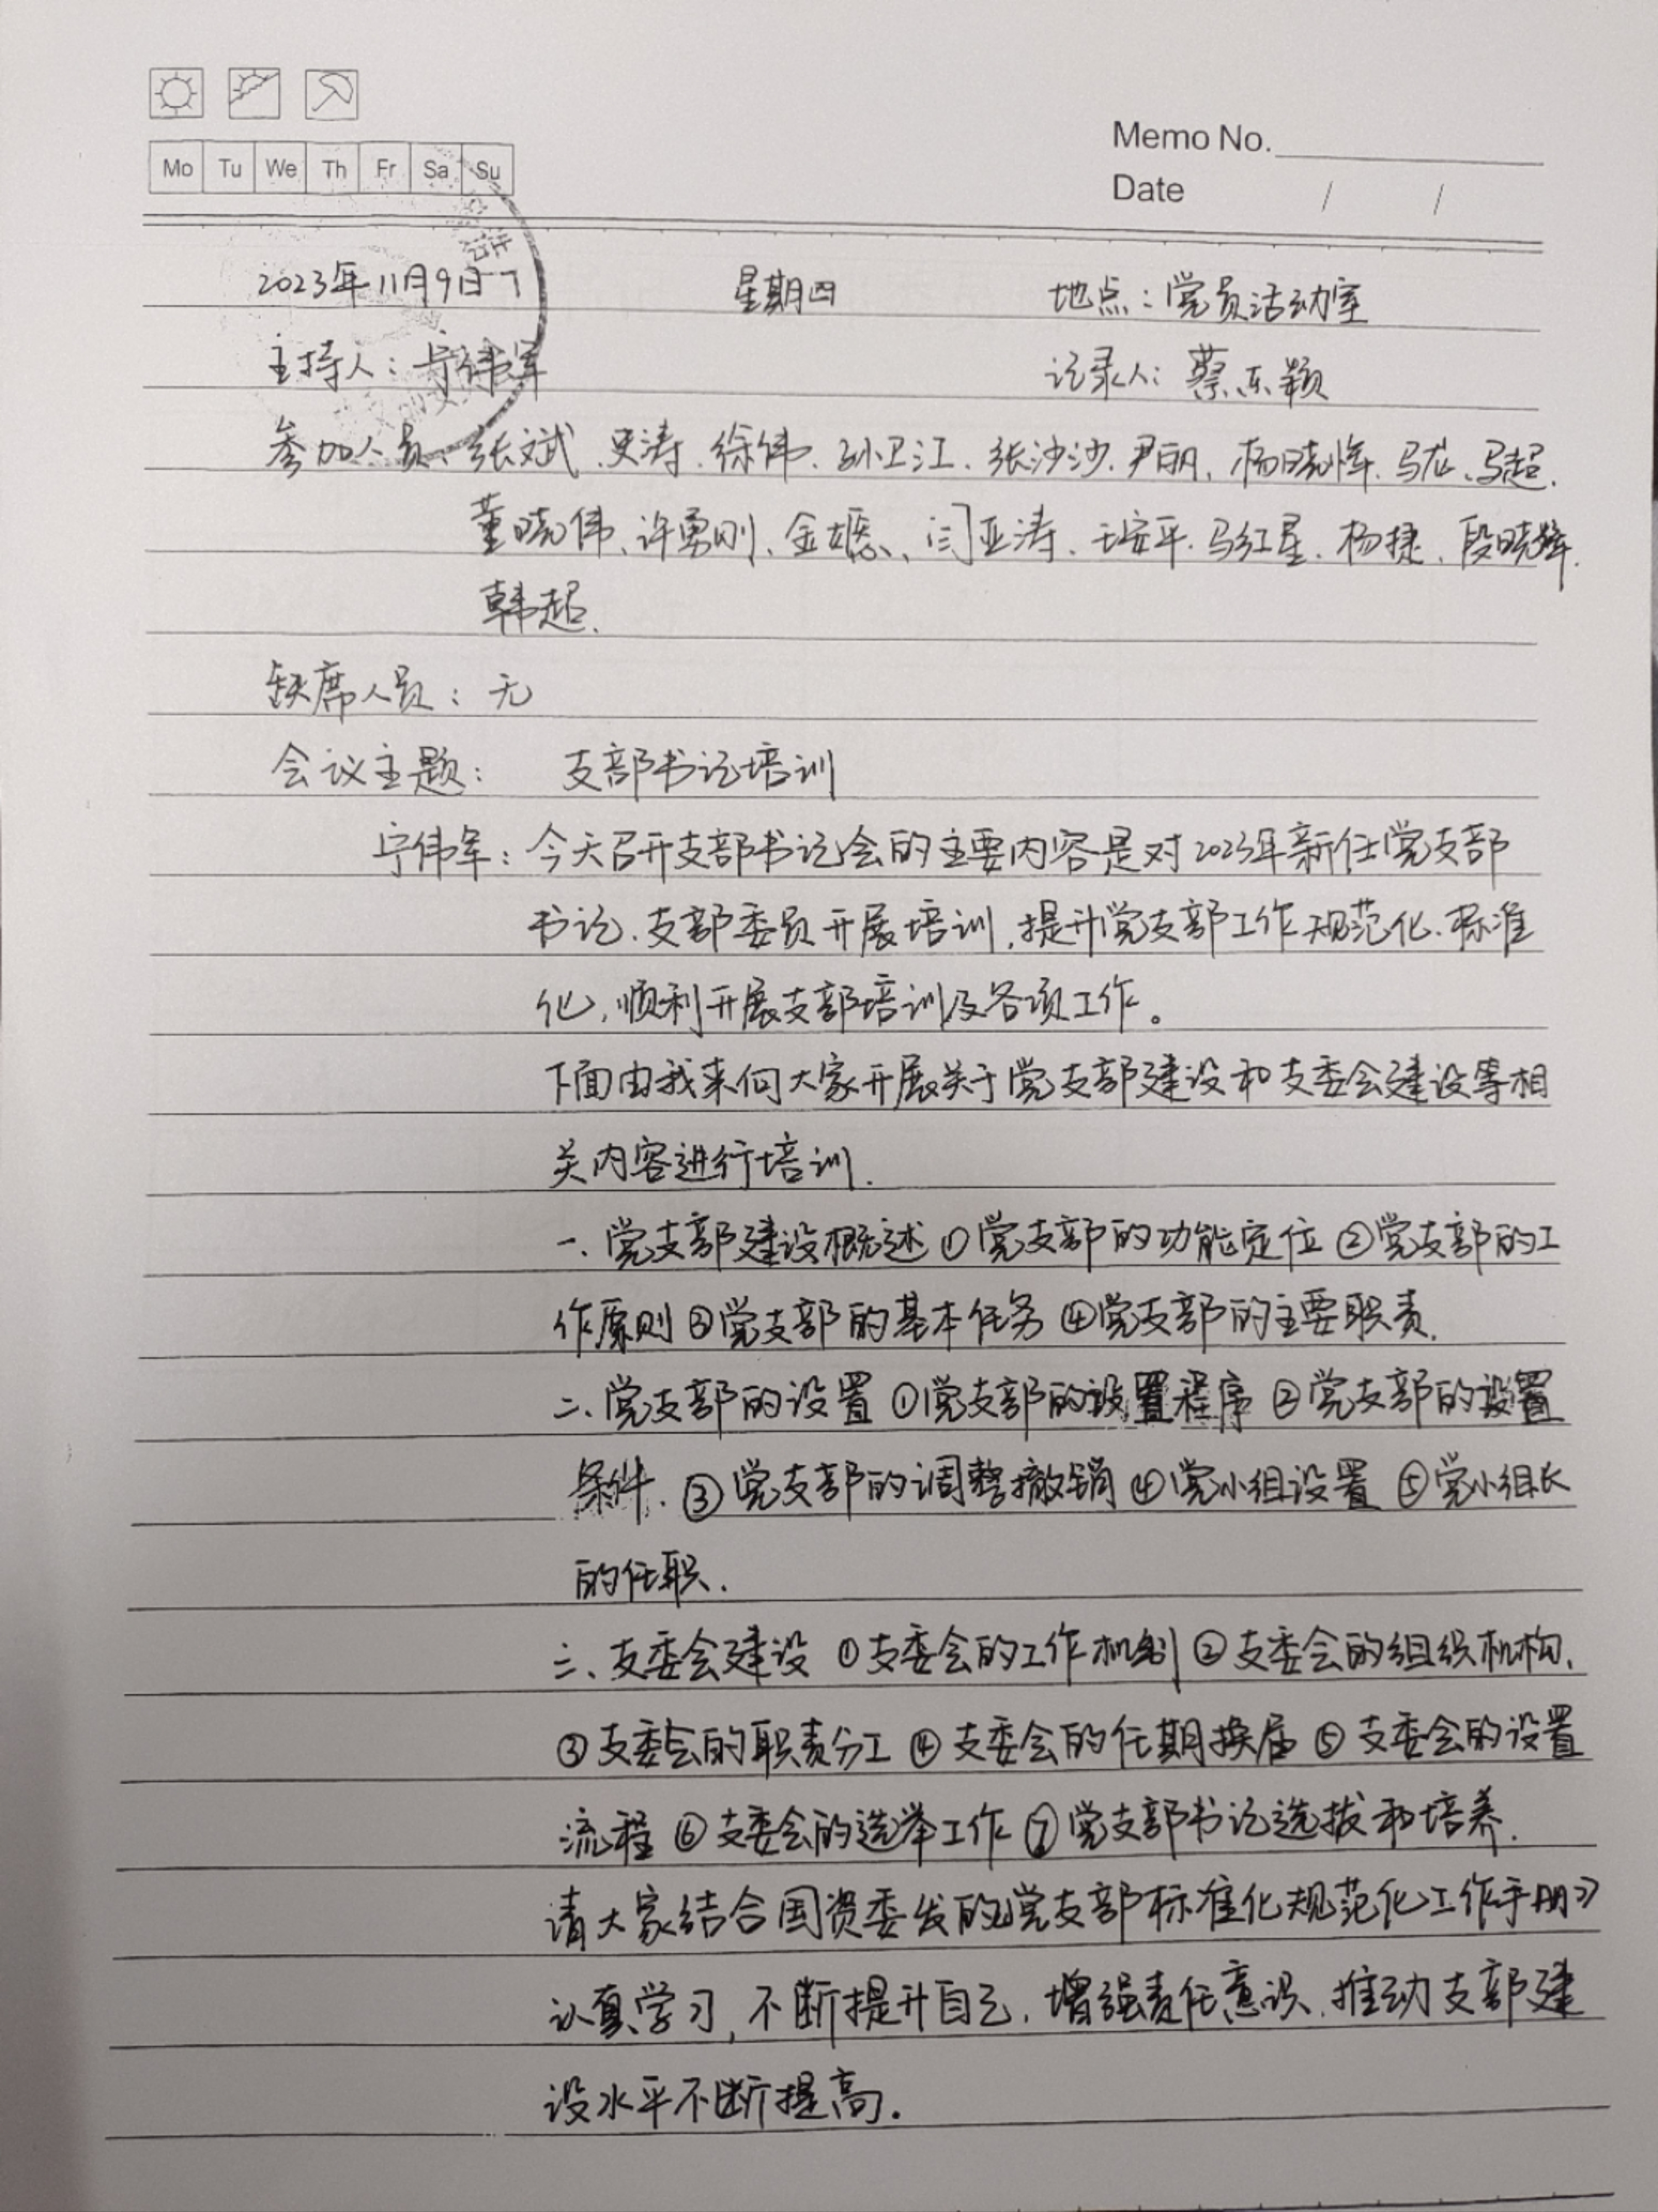 Mo Tu We Th Fr Sa Su
Memo No.
Date / /
2023年11月9日 星期四 地点：党员活动室
主持人：宁伟军 记录人：蔡东颖
参加人员、张文斌、史涛、徐伟、孙卫江、张沙沙、尹丽、杨晓辉、马龙、马超、
董晓伟、许勇刚、金嫕、闫亚涛、王安平、马红星、杨捷、段晓辉、
韩超、
缺席人员：无
会议主题： 支部书记培训
宁伟军：今天召开支部书记会的主要内容是对2023年新任党支部
书记、支部委员开展培训，提升党支部工作规范化、标准
化，顺利开展支部培训及各项工作。
下面由我来向大家开展关于党支部建设和支委会建设等相
关内容进行培训.
一、党支部建设概述 ①党支部的功能定位 ②党支部的工
作原则 ③党支部的基本任务 ④党支部的主要职责.
二、党支部的设置 ①党支部的设置程序 ②党支部的设置
条件、③党支部的调整撤销 ④党小组设置 ⑤党小组长
的任职.
三、支委会建设 ①支委会的工作机制 ②支委会的组织机构、
③支委会的职责分工 ④支委会的任期换届 ⑤支委会的设置
流程 ⑥支委会的选举工作 ⑦党支部书记选拔和培养.
请大家结合国资委发的《党支部标准化规范化工作手册》
认真学习，不断提升自己，增强责任意识，推动支部建
设水平不断提高.